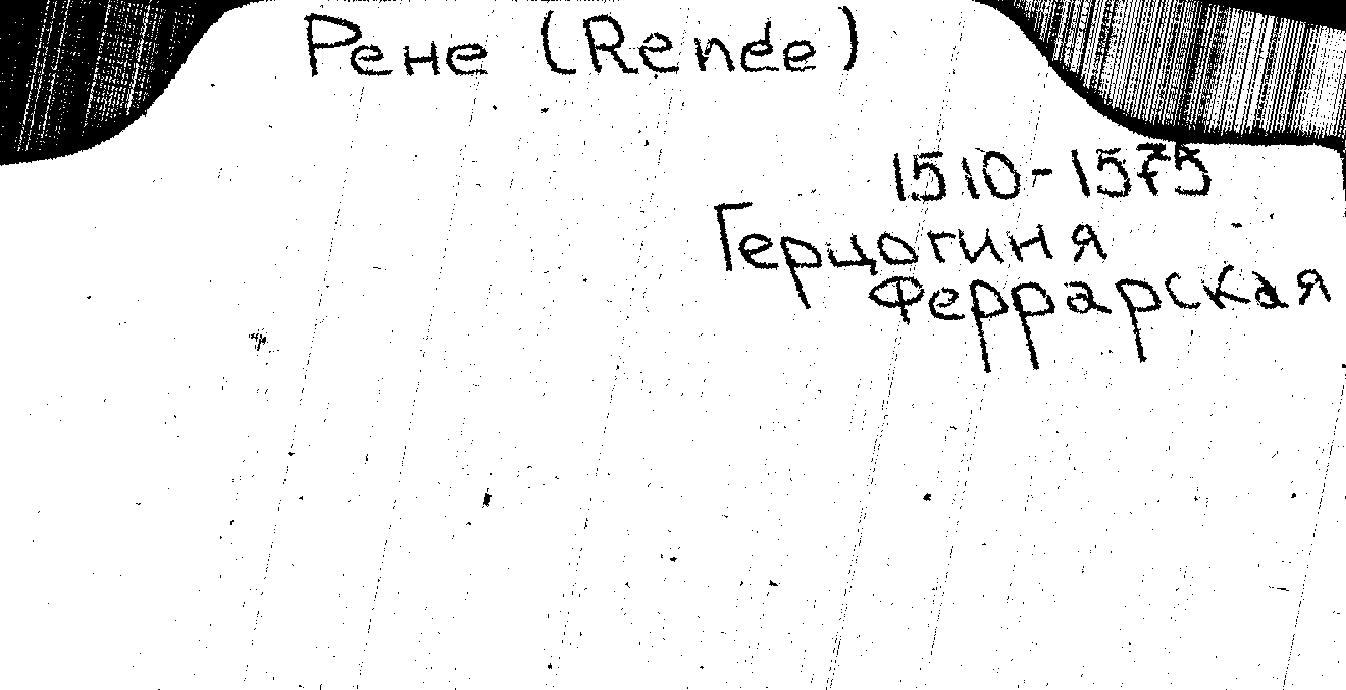 Рене (Renée)
1510-1575
Герцогиня
Феррарская